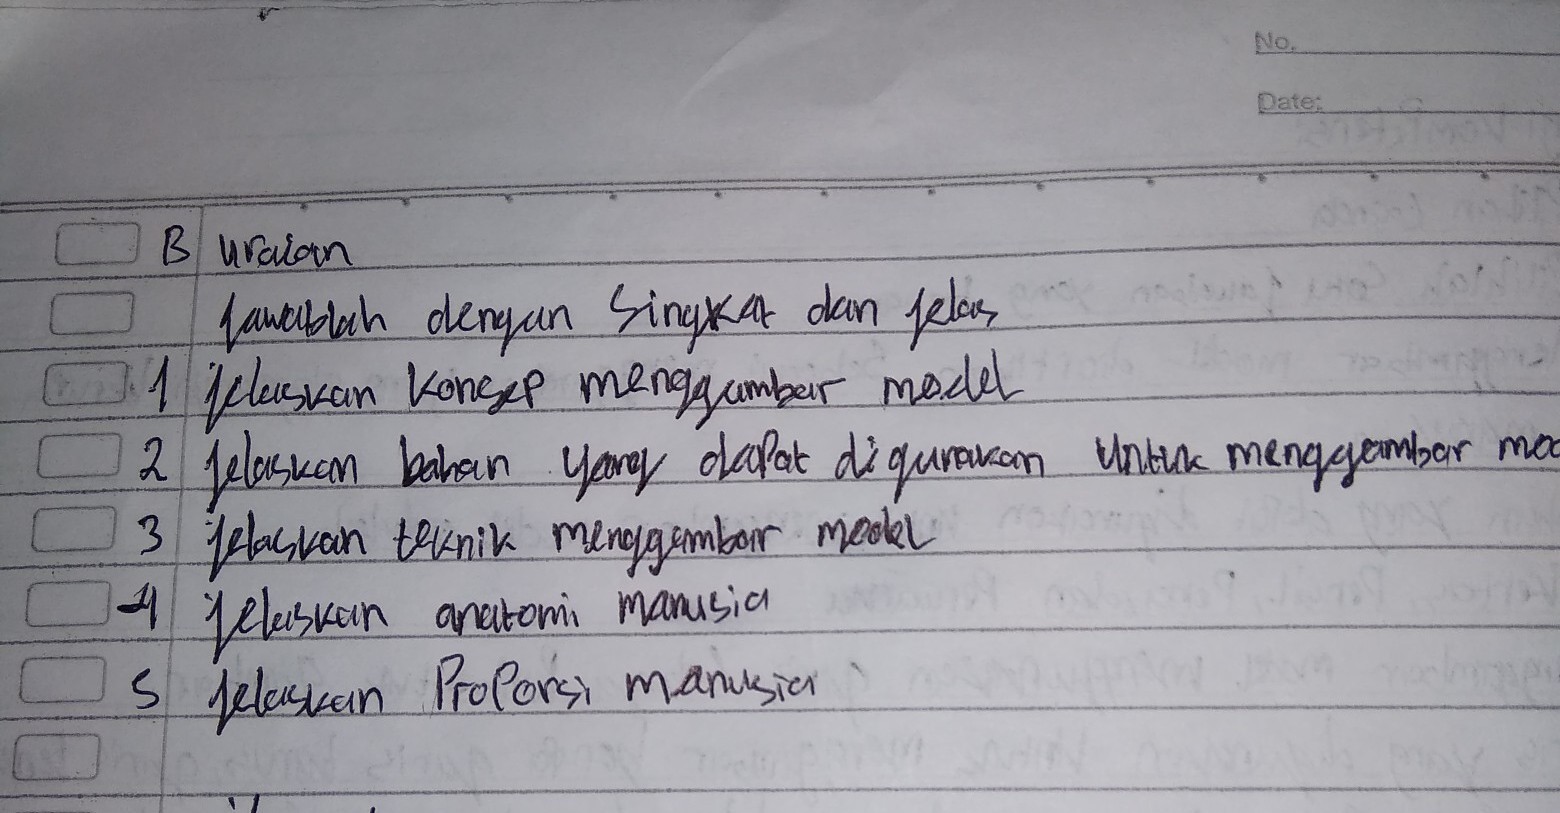 No.
Date:
B uraian
Jawablah dengan Singkat dan jelas
1 jelaskan Konsep menggambar model
2 jelaskan bahan yang dapat digunakan Untuk menggambar mod
3 jelaskan teknik menggambar model
4 jelaskan anatomi manusia
5 jelaskan ProPorsi manusia